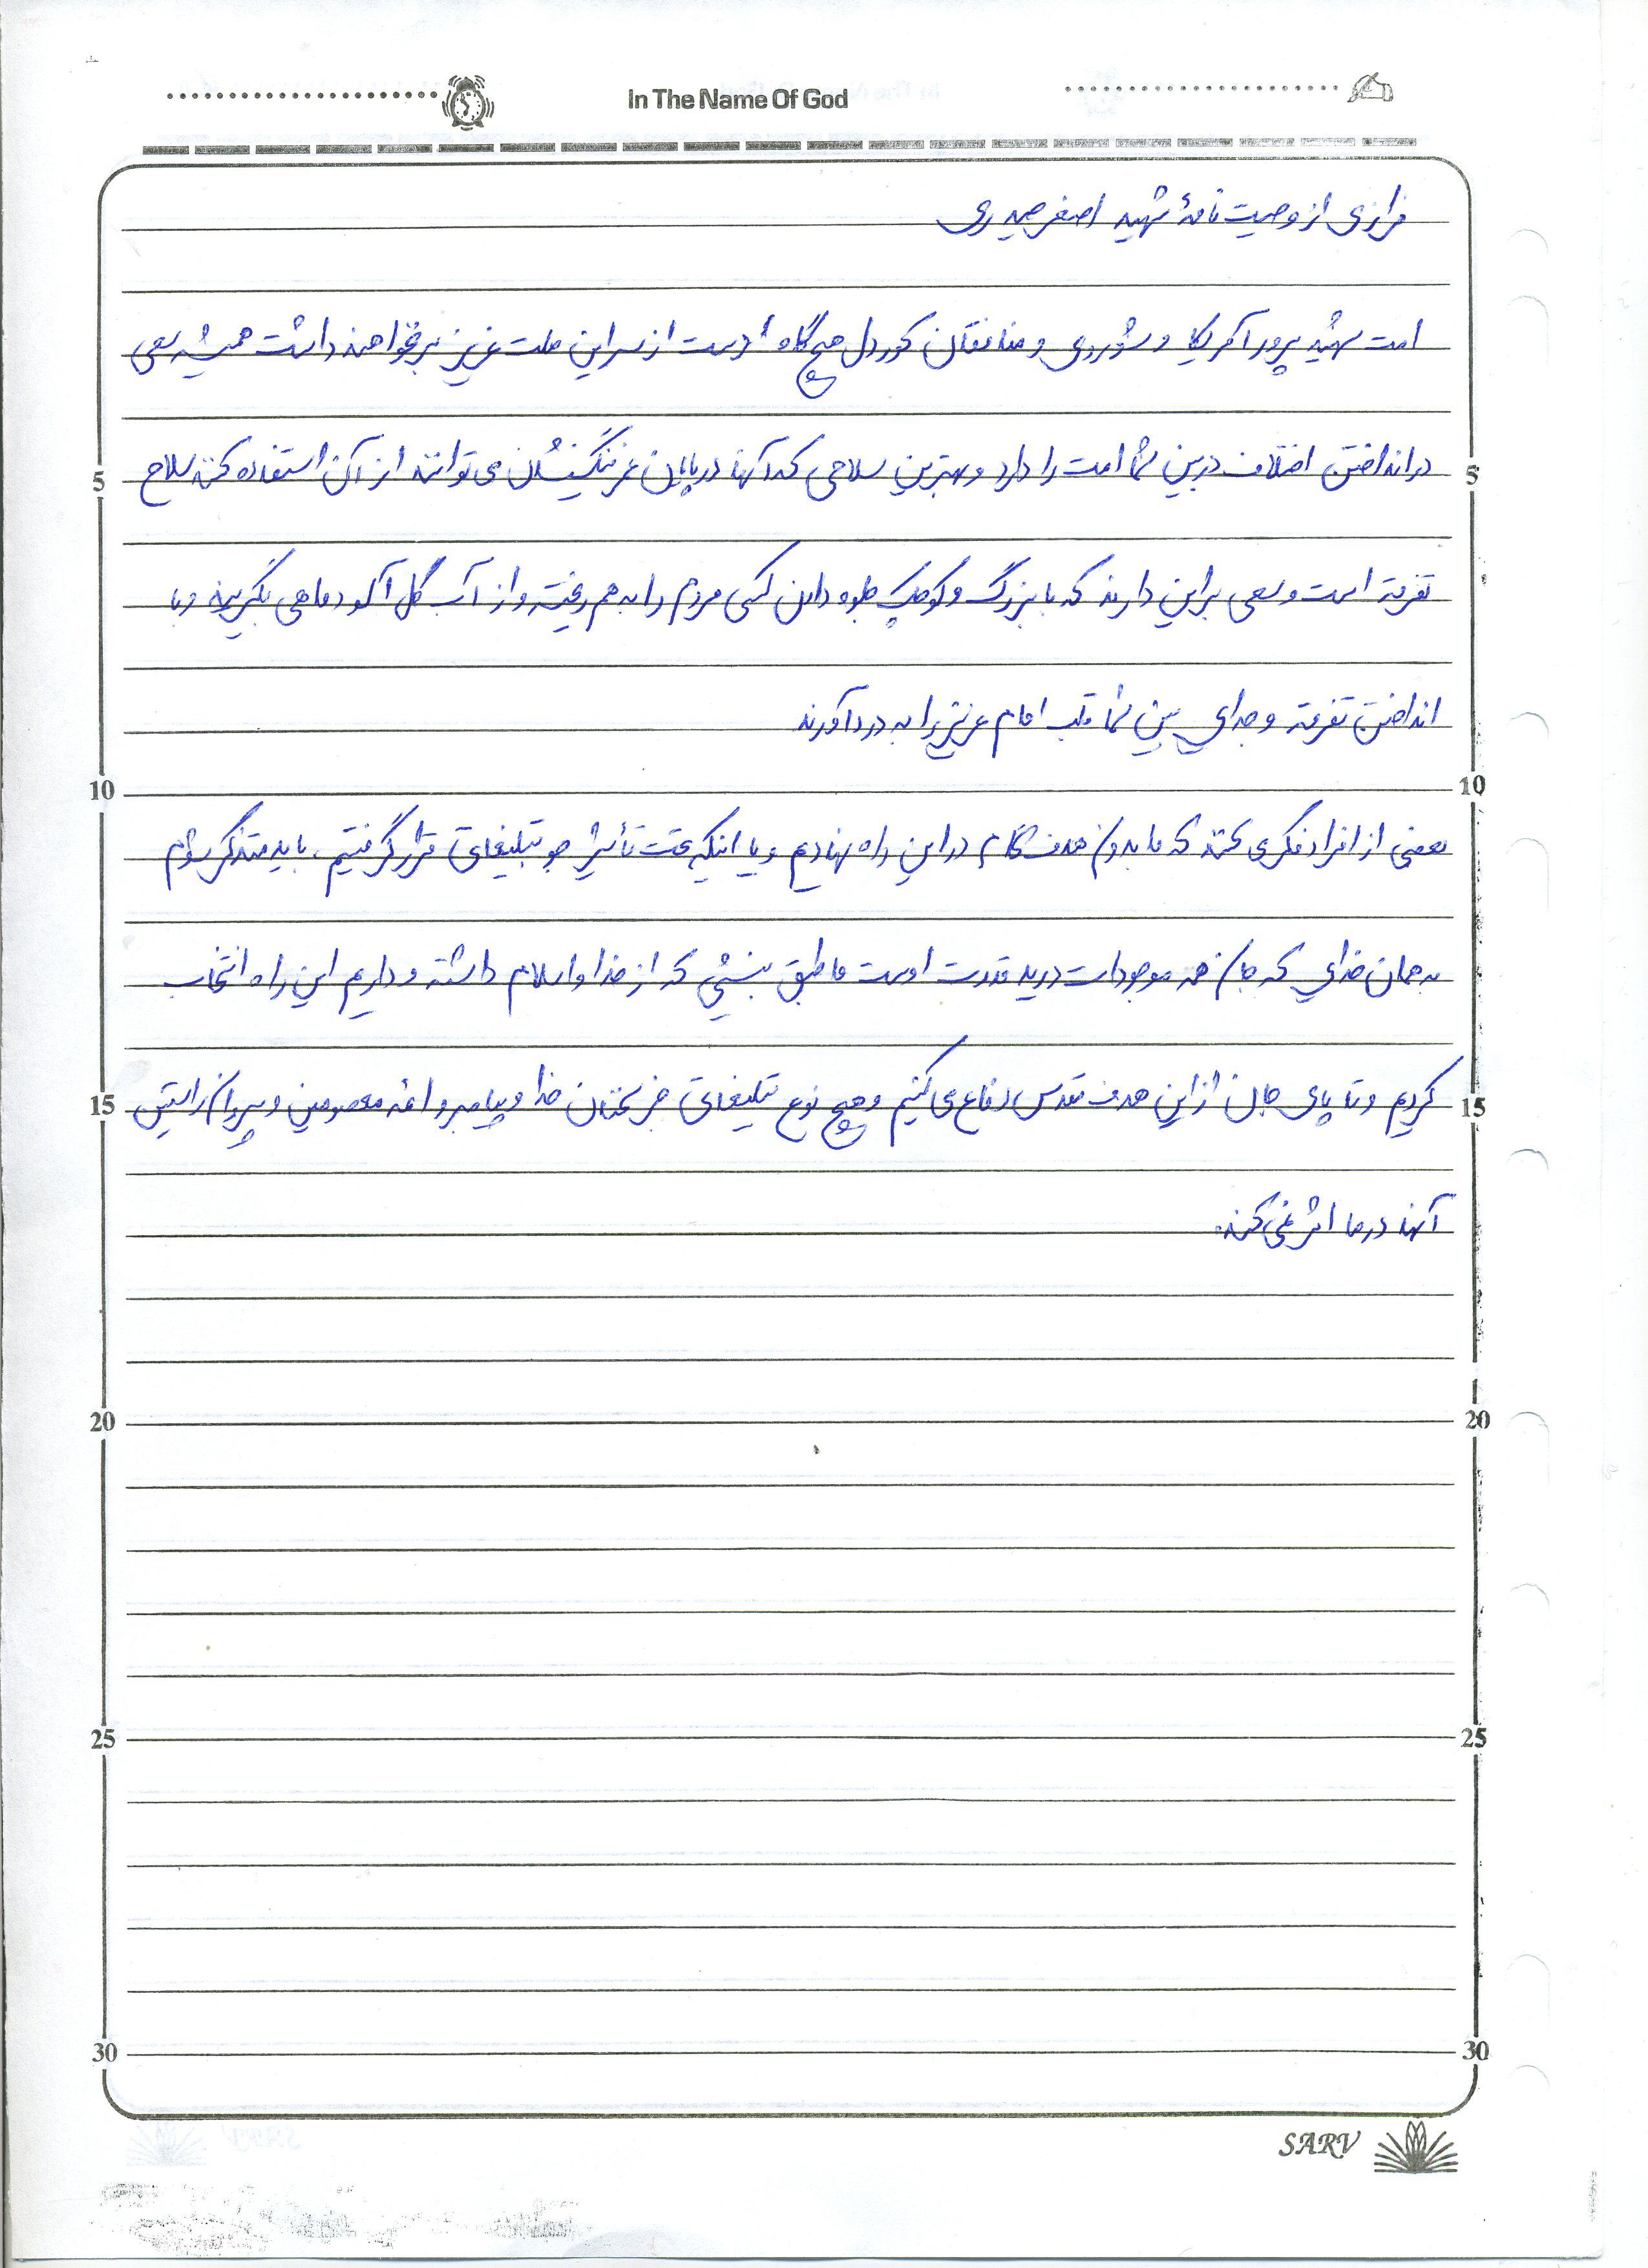 In The Name Of God
فرازی از وصیت نامهٔ شهید اصغر حیدری
امت شهید پرور آمریکا و شوروی و منافقان کوردل هیچ گاه دست از سر این ملت عزیز برنخواهند داشت همیشه سعی
5 در انداختن اختلاف در بین شما امت را دارد و بهترین سلاحی که آنها در پایان عمر ننگینشان می توانند از آن استفاده کنند سلاح 5
تفرقه است و سعی بر این دارند که با بزرگ و کوچک جلوه دادن کسی مردم را به هم ریخته و از آب گل آلود ماهی بگیرند و با
انداختن تفرقه و جدایی بین شما قلب امام عزیز را به درد آورند
10 10
بعضی از افراد فکر می کنند که ما بدون هدف گام در این راه نهادیم و یا اینکه تحت تأثیر جو تبلیغاتی قرار گرفتیم، باید متذکر شوم
به همان خدایی که جان همه موجودات در ید قدرت اوست ما طبق بینشی که از خدا و اسلام داشته و داریم این راه انتخاب
15 کردیم و تا پای جان از این هدف مقدس دفاع می کنیم و هیچ نوع تبلیغاتی جز سخنان خدا و پیامبر و ائمه معصومین و پیروان راستین 15
آنها در ما اثر نمی کند.
20 20
25 25
30 30
SARV